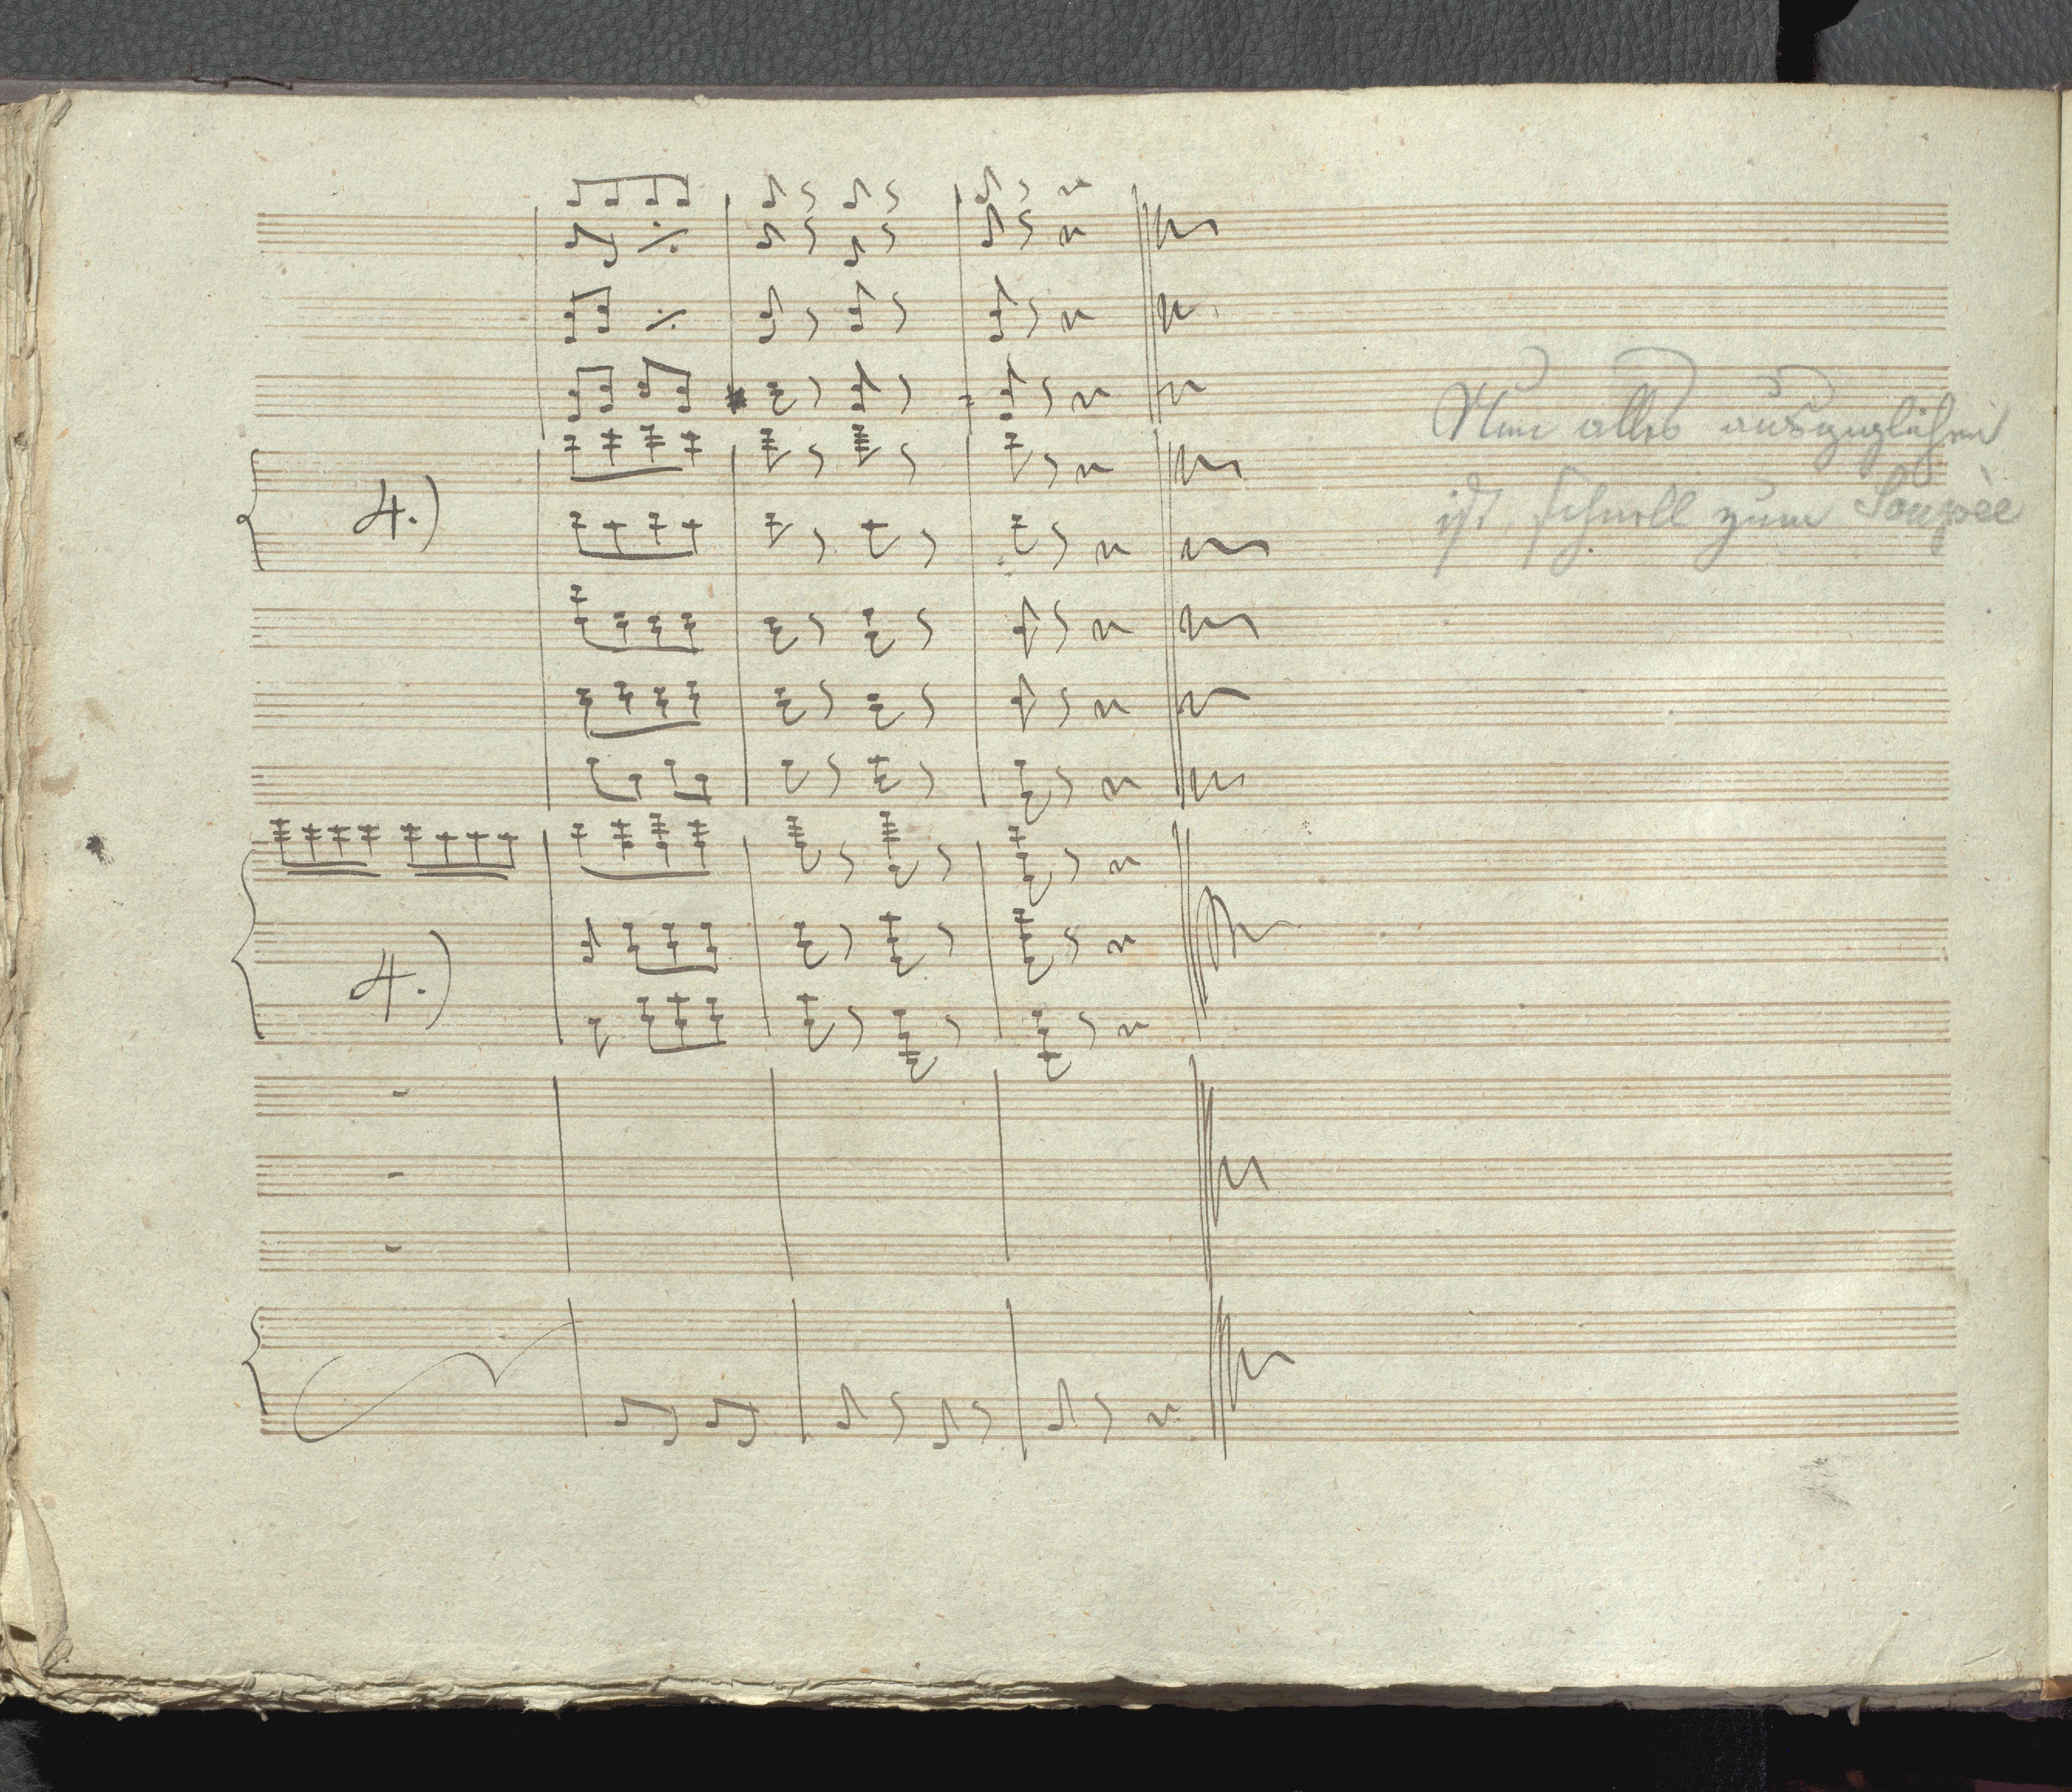 4.)
Nun alles ausgeglichen
ist, schnell zum Soupèe
4.)